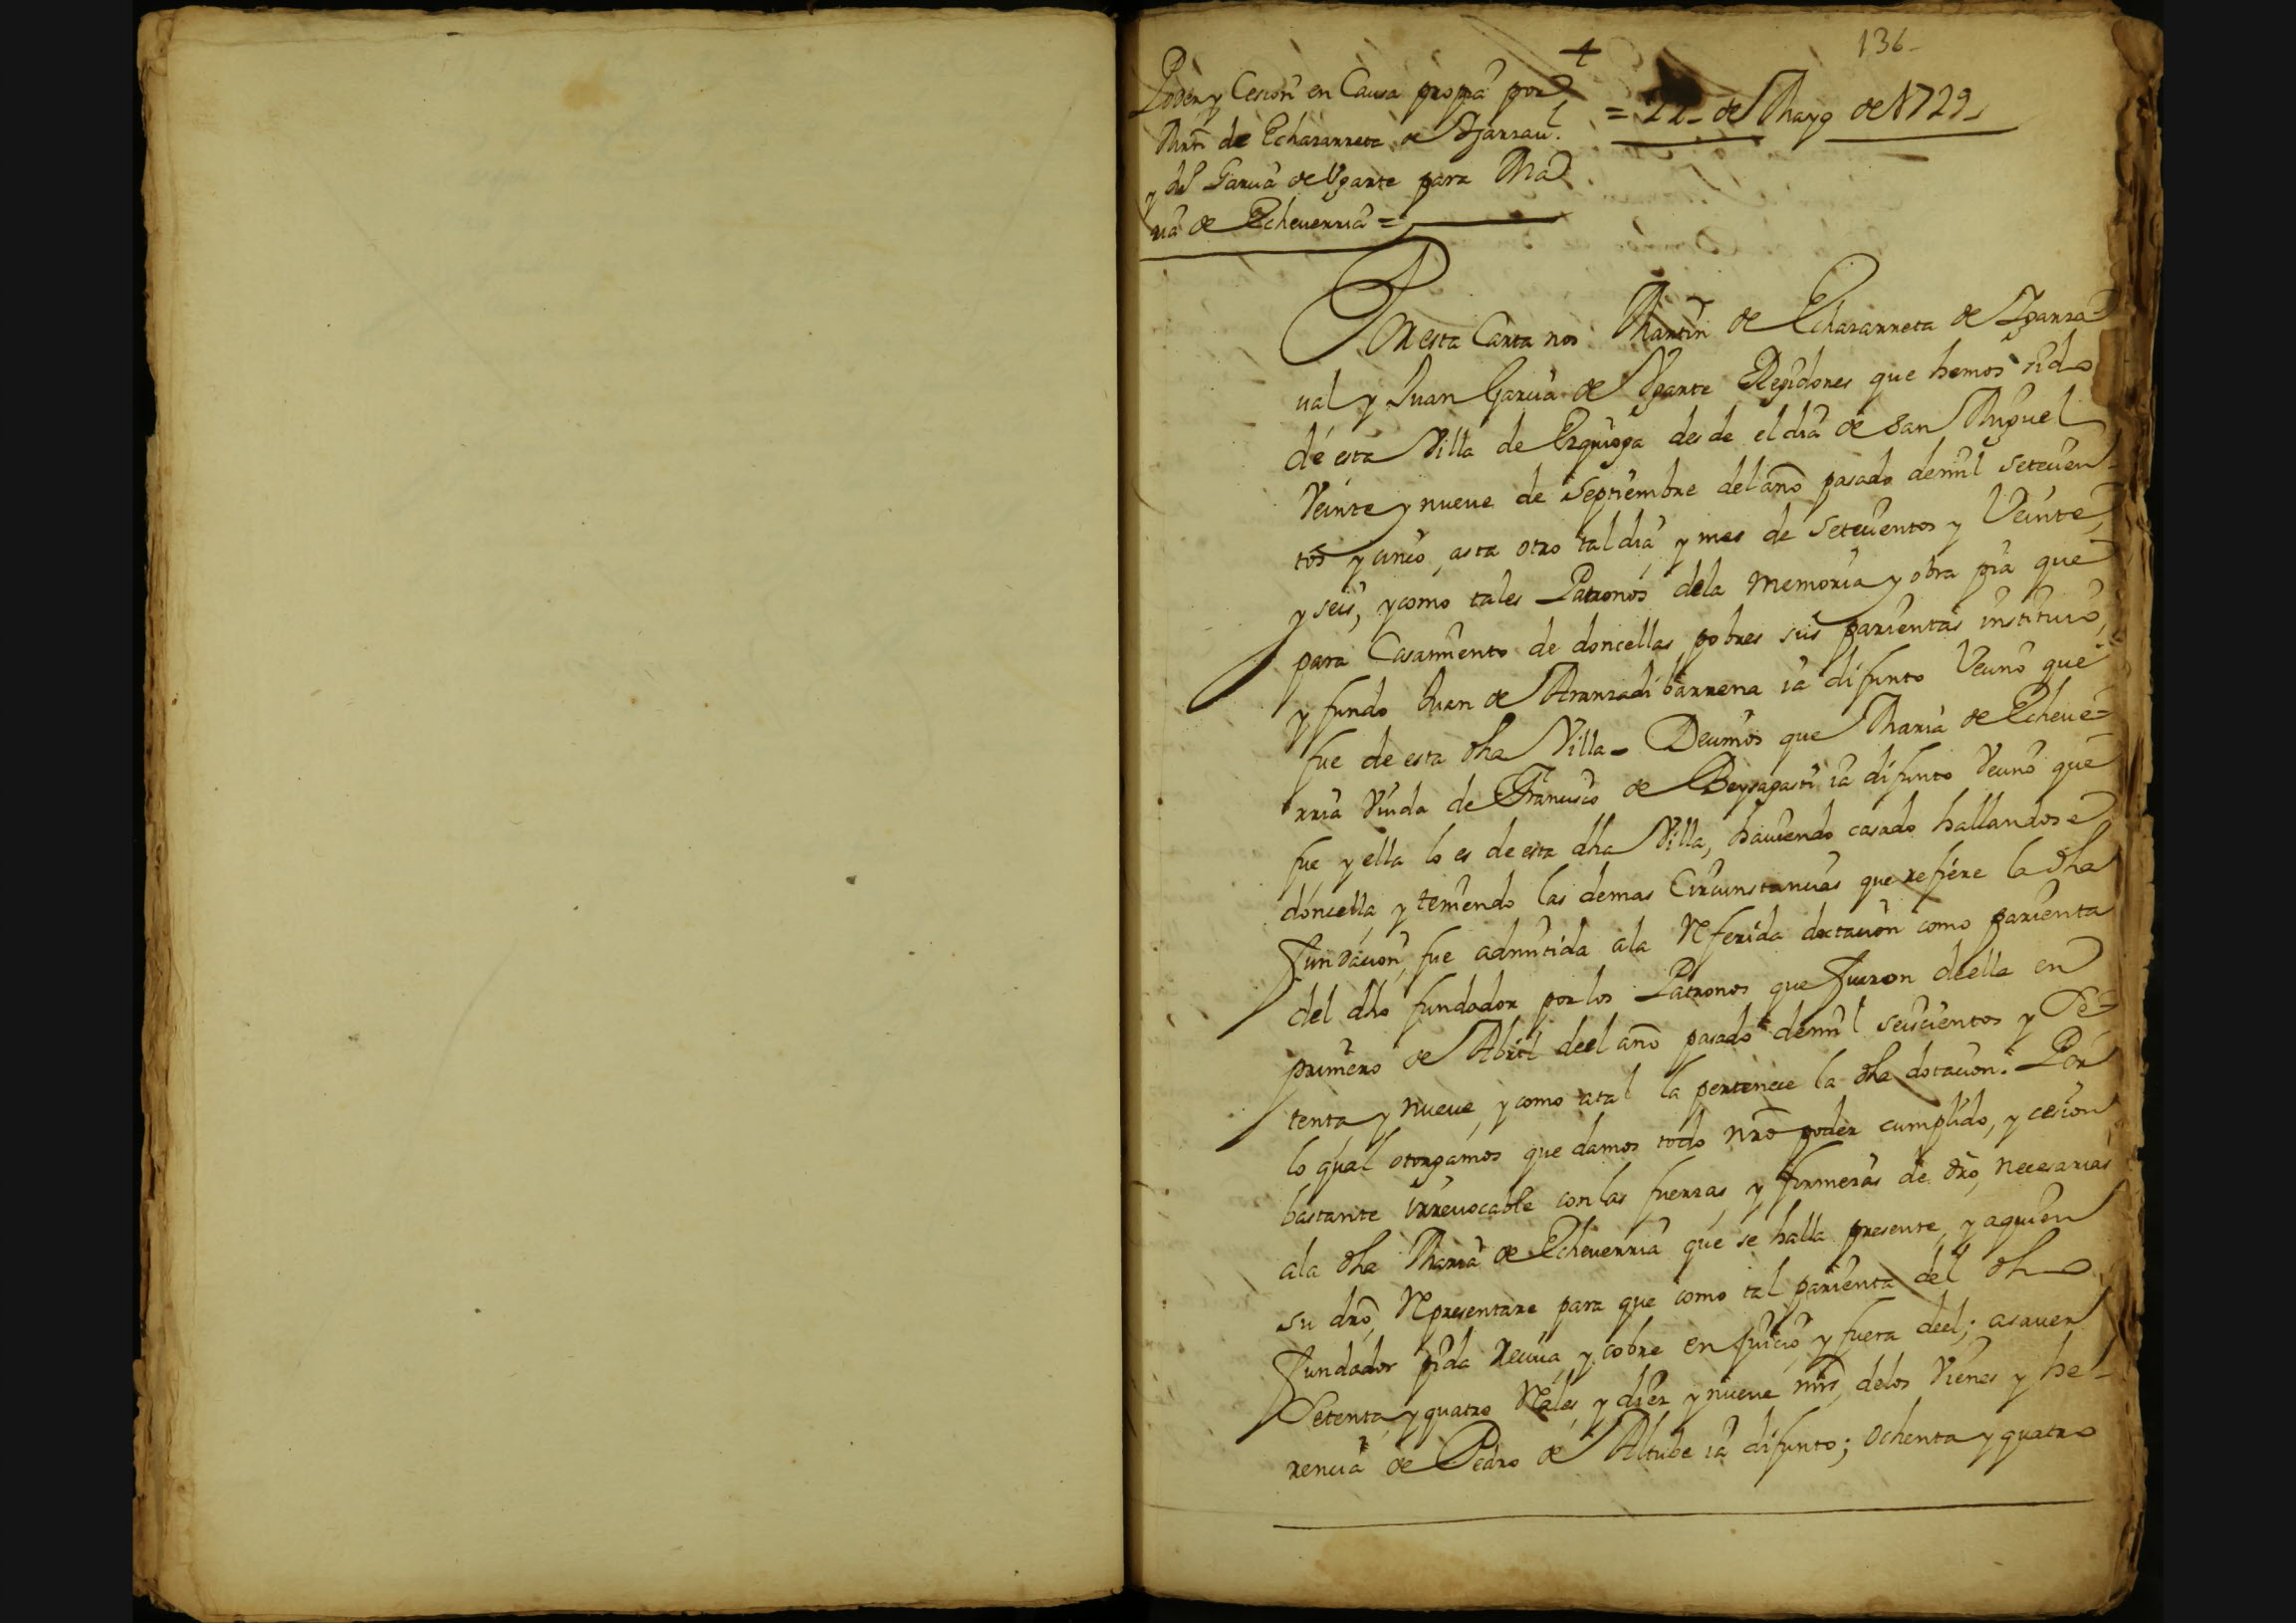 136
Poder y Cesion en Causa propia por
Martn de Echazarreta de Yzarzau.l
y del Garcia de Vgarte para Ma
ria de Echeuerria =
= 22 de Mayo de 1729
En esta Carta nos Martin de Echazarreta de Yzarza=
ual y Juan Garcia de Vgarte Regidores que hemos sido
de esta Villa de Ezquioga desde el dia de San Miguel
Veinte y nueue de Septiembre del año pasado de mil setecien-
tos y cinco, asta otro tal dia y mes de Setecientos y Veinte
y seis, y como tales Patronos dela memoria y obra pia que
para Casamiento de doncellas pobres sus parientas instituio,
y fundo Juan de Aranzadibarrena ia difunto Vecino que
fue de esta dha Villa - Decimos que Maria de Echeue=
rria Viuda de Francisco de Beysagasti ia difunto Vecino que
fue y ella lo es de esta dha Villa, hauiendo casado hallandose
doncella, y teniendo las demas Circunstancias que refiere la dha
fundacion, fue admitida ala Referida doctacion como parienta
del dho fundador por los Patronos que fueron de ella en
primero de Abril de el año pasado de mil seiscientos y Se=
tenta y nueue, y como atal la pertenece la dha dotacion. Por
lo qual otorgamos que damos todo nro poder cumplido, y cesion
bastante irreuocable con las fuerzas, y firmezas de dro, necesarias
ala dha Maria de Echeuerria que se halla presente, y aquien
su dro, Representare para que como tal parienta del dho
fundador pida Reciua, y cobre en juicio y fuera de el; asauer
Setenta y quatro Rales, y diez y nueue mrs, delos Vienes y he-
rencia de Pedro de Altube ia difunto; ochenta y quatro